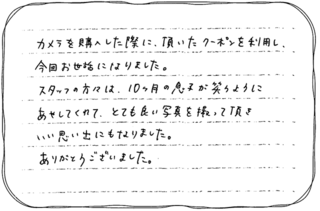 カメラを購入した際に、頂いたクーポンを利用し、
今回お世話になりました。
スタッフの方々は、10ヶ月の息子が笑うように
あやしてくれて、とても良い写真を撮って頂き
いい思い出にもなりました。
ありがとうございました。